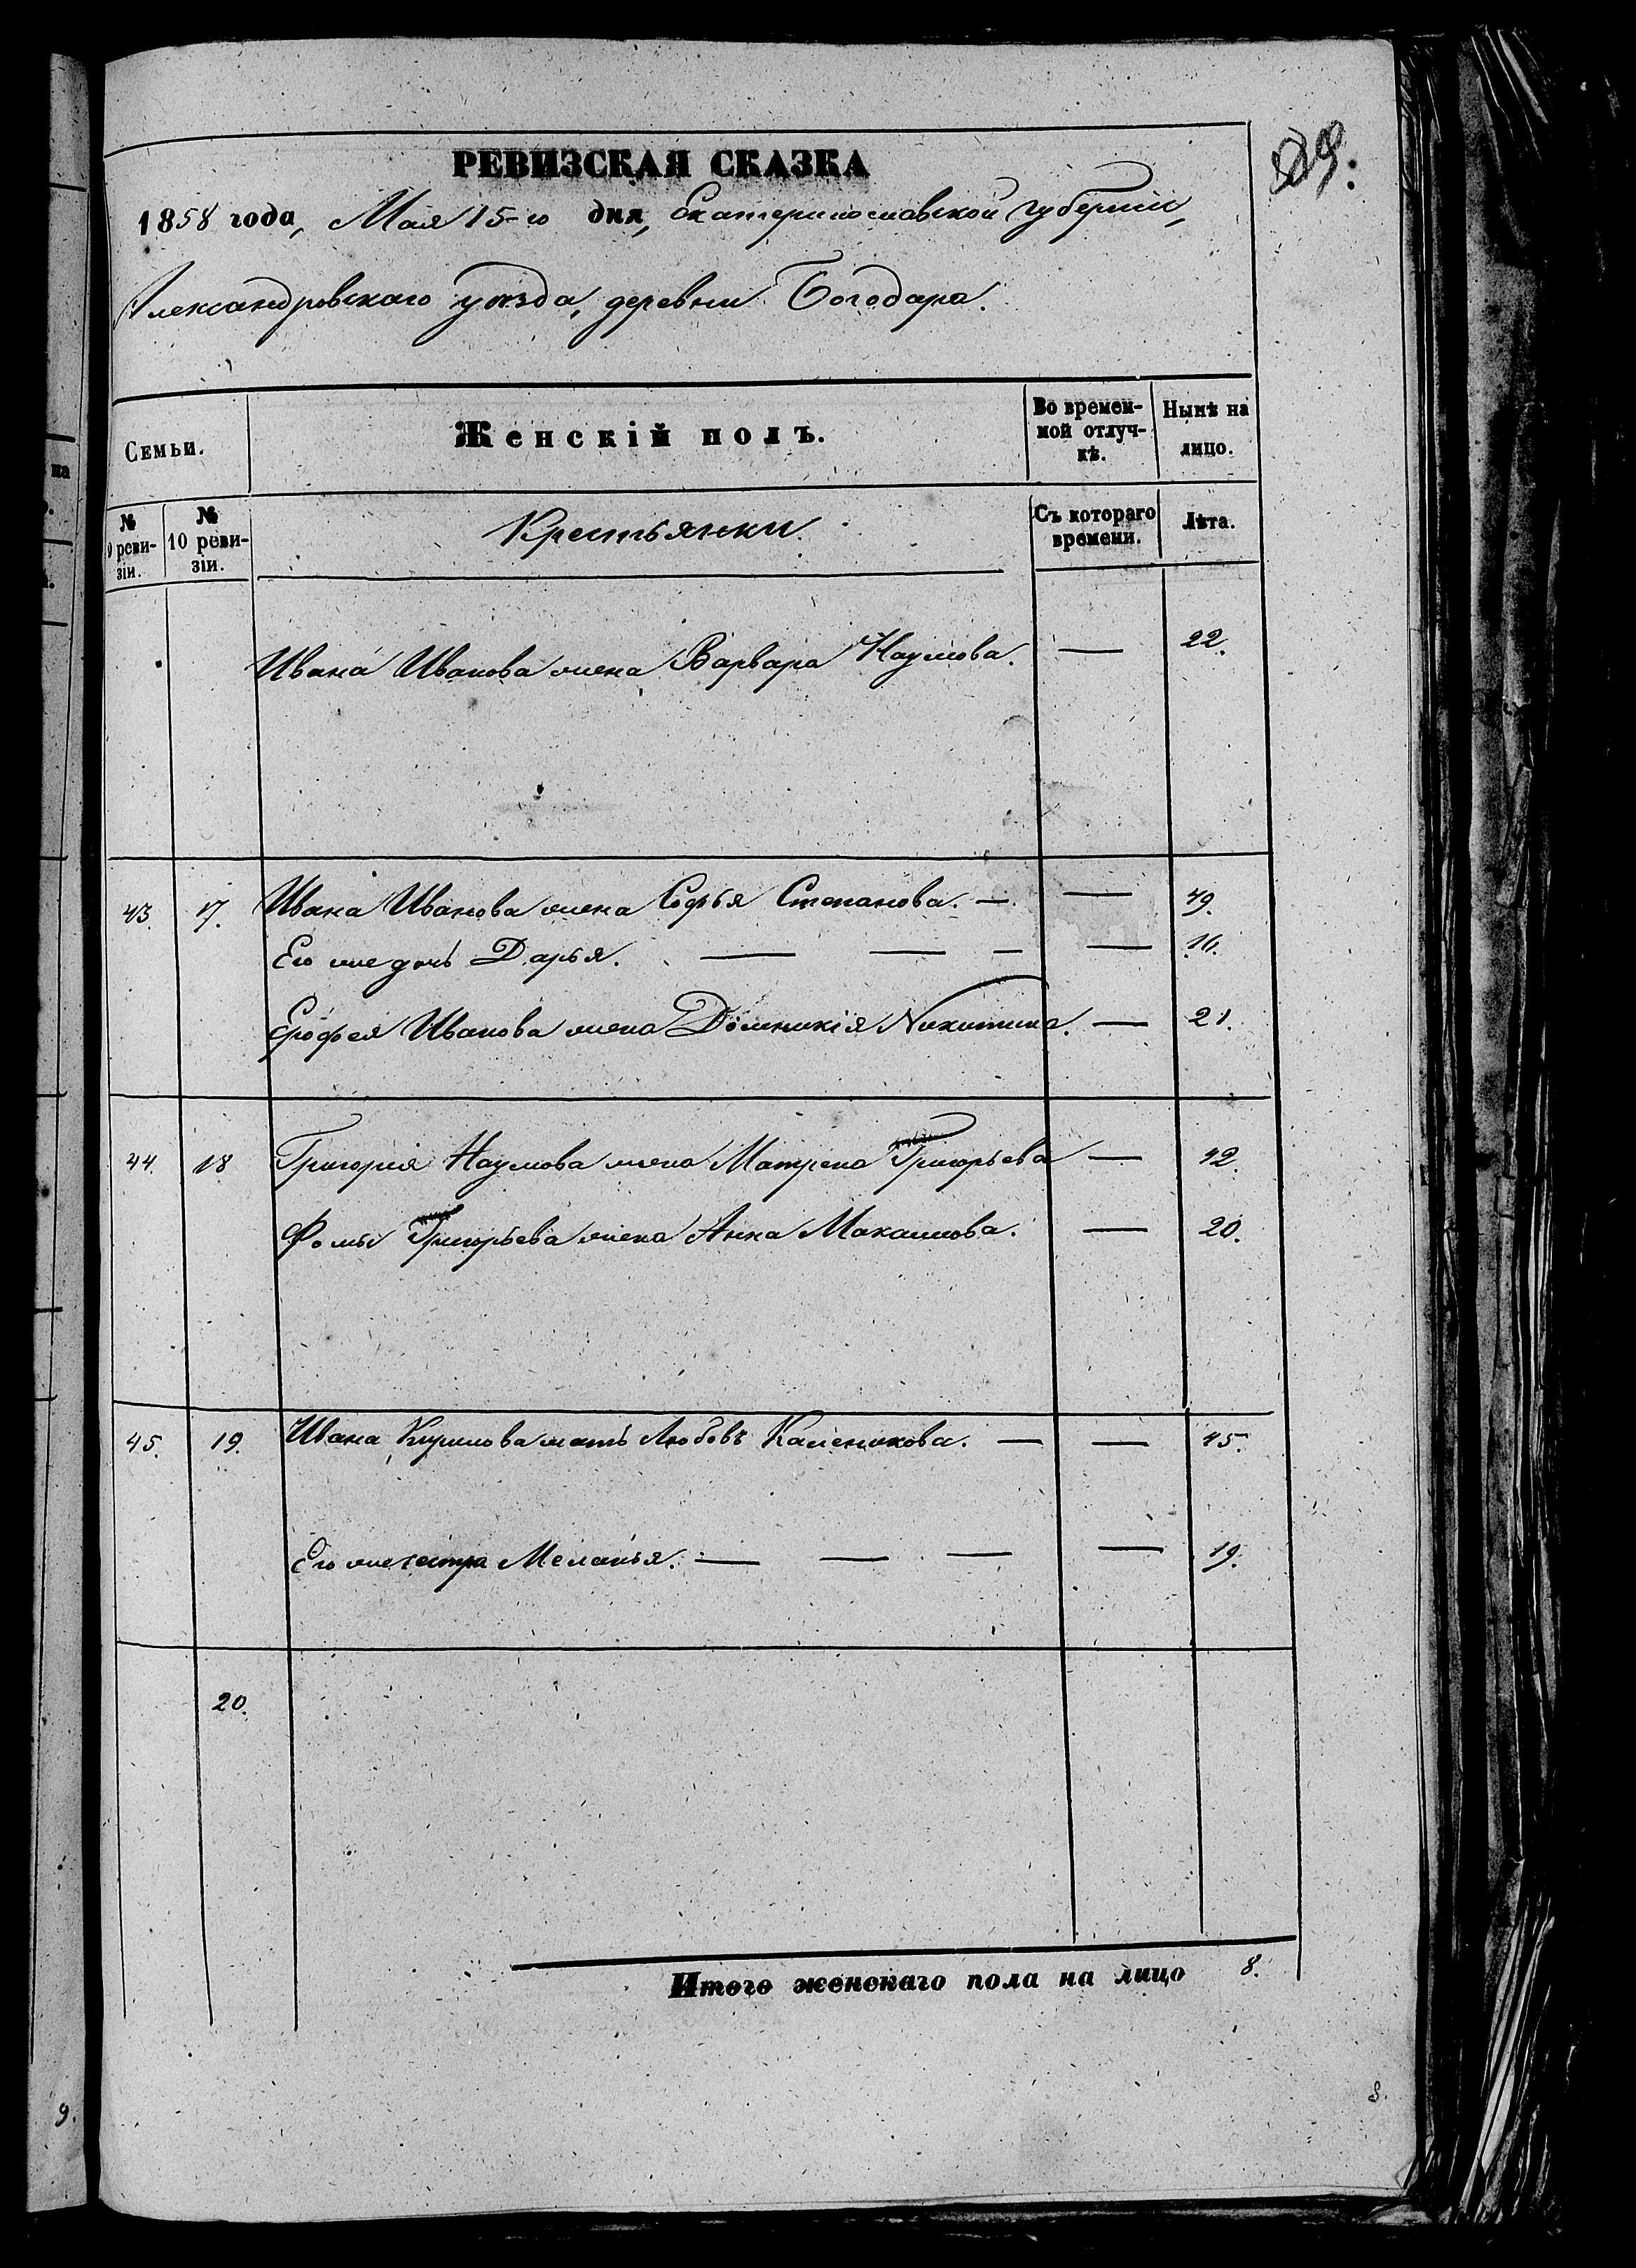 РЕВИЗСКАЯ СКАЗКА
1858 года, Мая 15-го дня, Екатеринославской губернии,
Александровскаго уѣзда, деревни Богодара.
Семьи.
Женскій полъ.
Во времен-
ной отлуч-
кѣ.
Нынѣ на
лицо.
№
9 реви-
зіи.
№
10 реви-
зіи.
Крестьянки.
Съ котораго
времени.
Лѣта.
Ивана Иванова жена Варвара Наумова. — 22.
43. 17. Ивана Иванова жена Софья Степанова. — — 49.
Его же дочь Дарья. — — — — 16.
Ерофея Иванова жена Домникія Никитина. — 21.
44. 18 Григорія Наумова жена Матрена Григорьева — 42.
Фомы Григорьева жена Анна Макаимова. — 20.
45. 19. Ивана Кирилова мать Любовъ Каленикова. — — 45.
Его же сестра Меланья. — — — — 19.
20.
Итого женскаго пола на лицо 8.
9.
8.